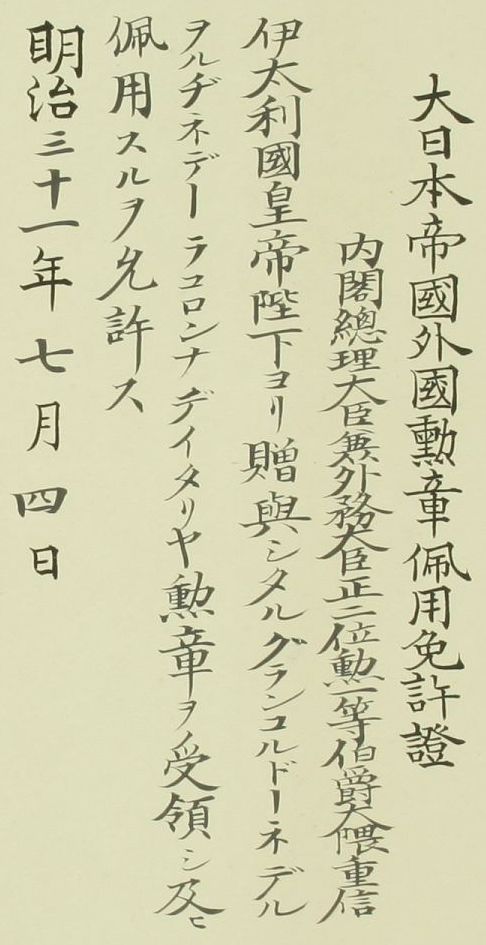 大日本帝國外國勲章佩用免許證
内閣總理大臣兼外務大臣正二位勲一等伯爵大隈重信
伊太利國皇帝陛下ヨリ贈與シタルグランコルドーネデル
ヲルヂネデーラコロンナデイタリヤ勲章ヲ受領シ及ヒ
佩用スルヲ允許ス
明治三十一年七月四日